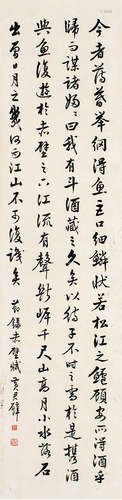 今者薄暮舉網得魚巨口細鱗狀若松江之鱸顧安所得酒乎
歸而謀諸婦婦曰我有斗酒藏之久矣以待子不時之需於是攜酒
與魚復遊於赤壁之下江流有聲斷岸千尺山高月小水落石
出曾日月之幾何而江山不可復識矣 節錄赤壁賦 黄君璧